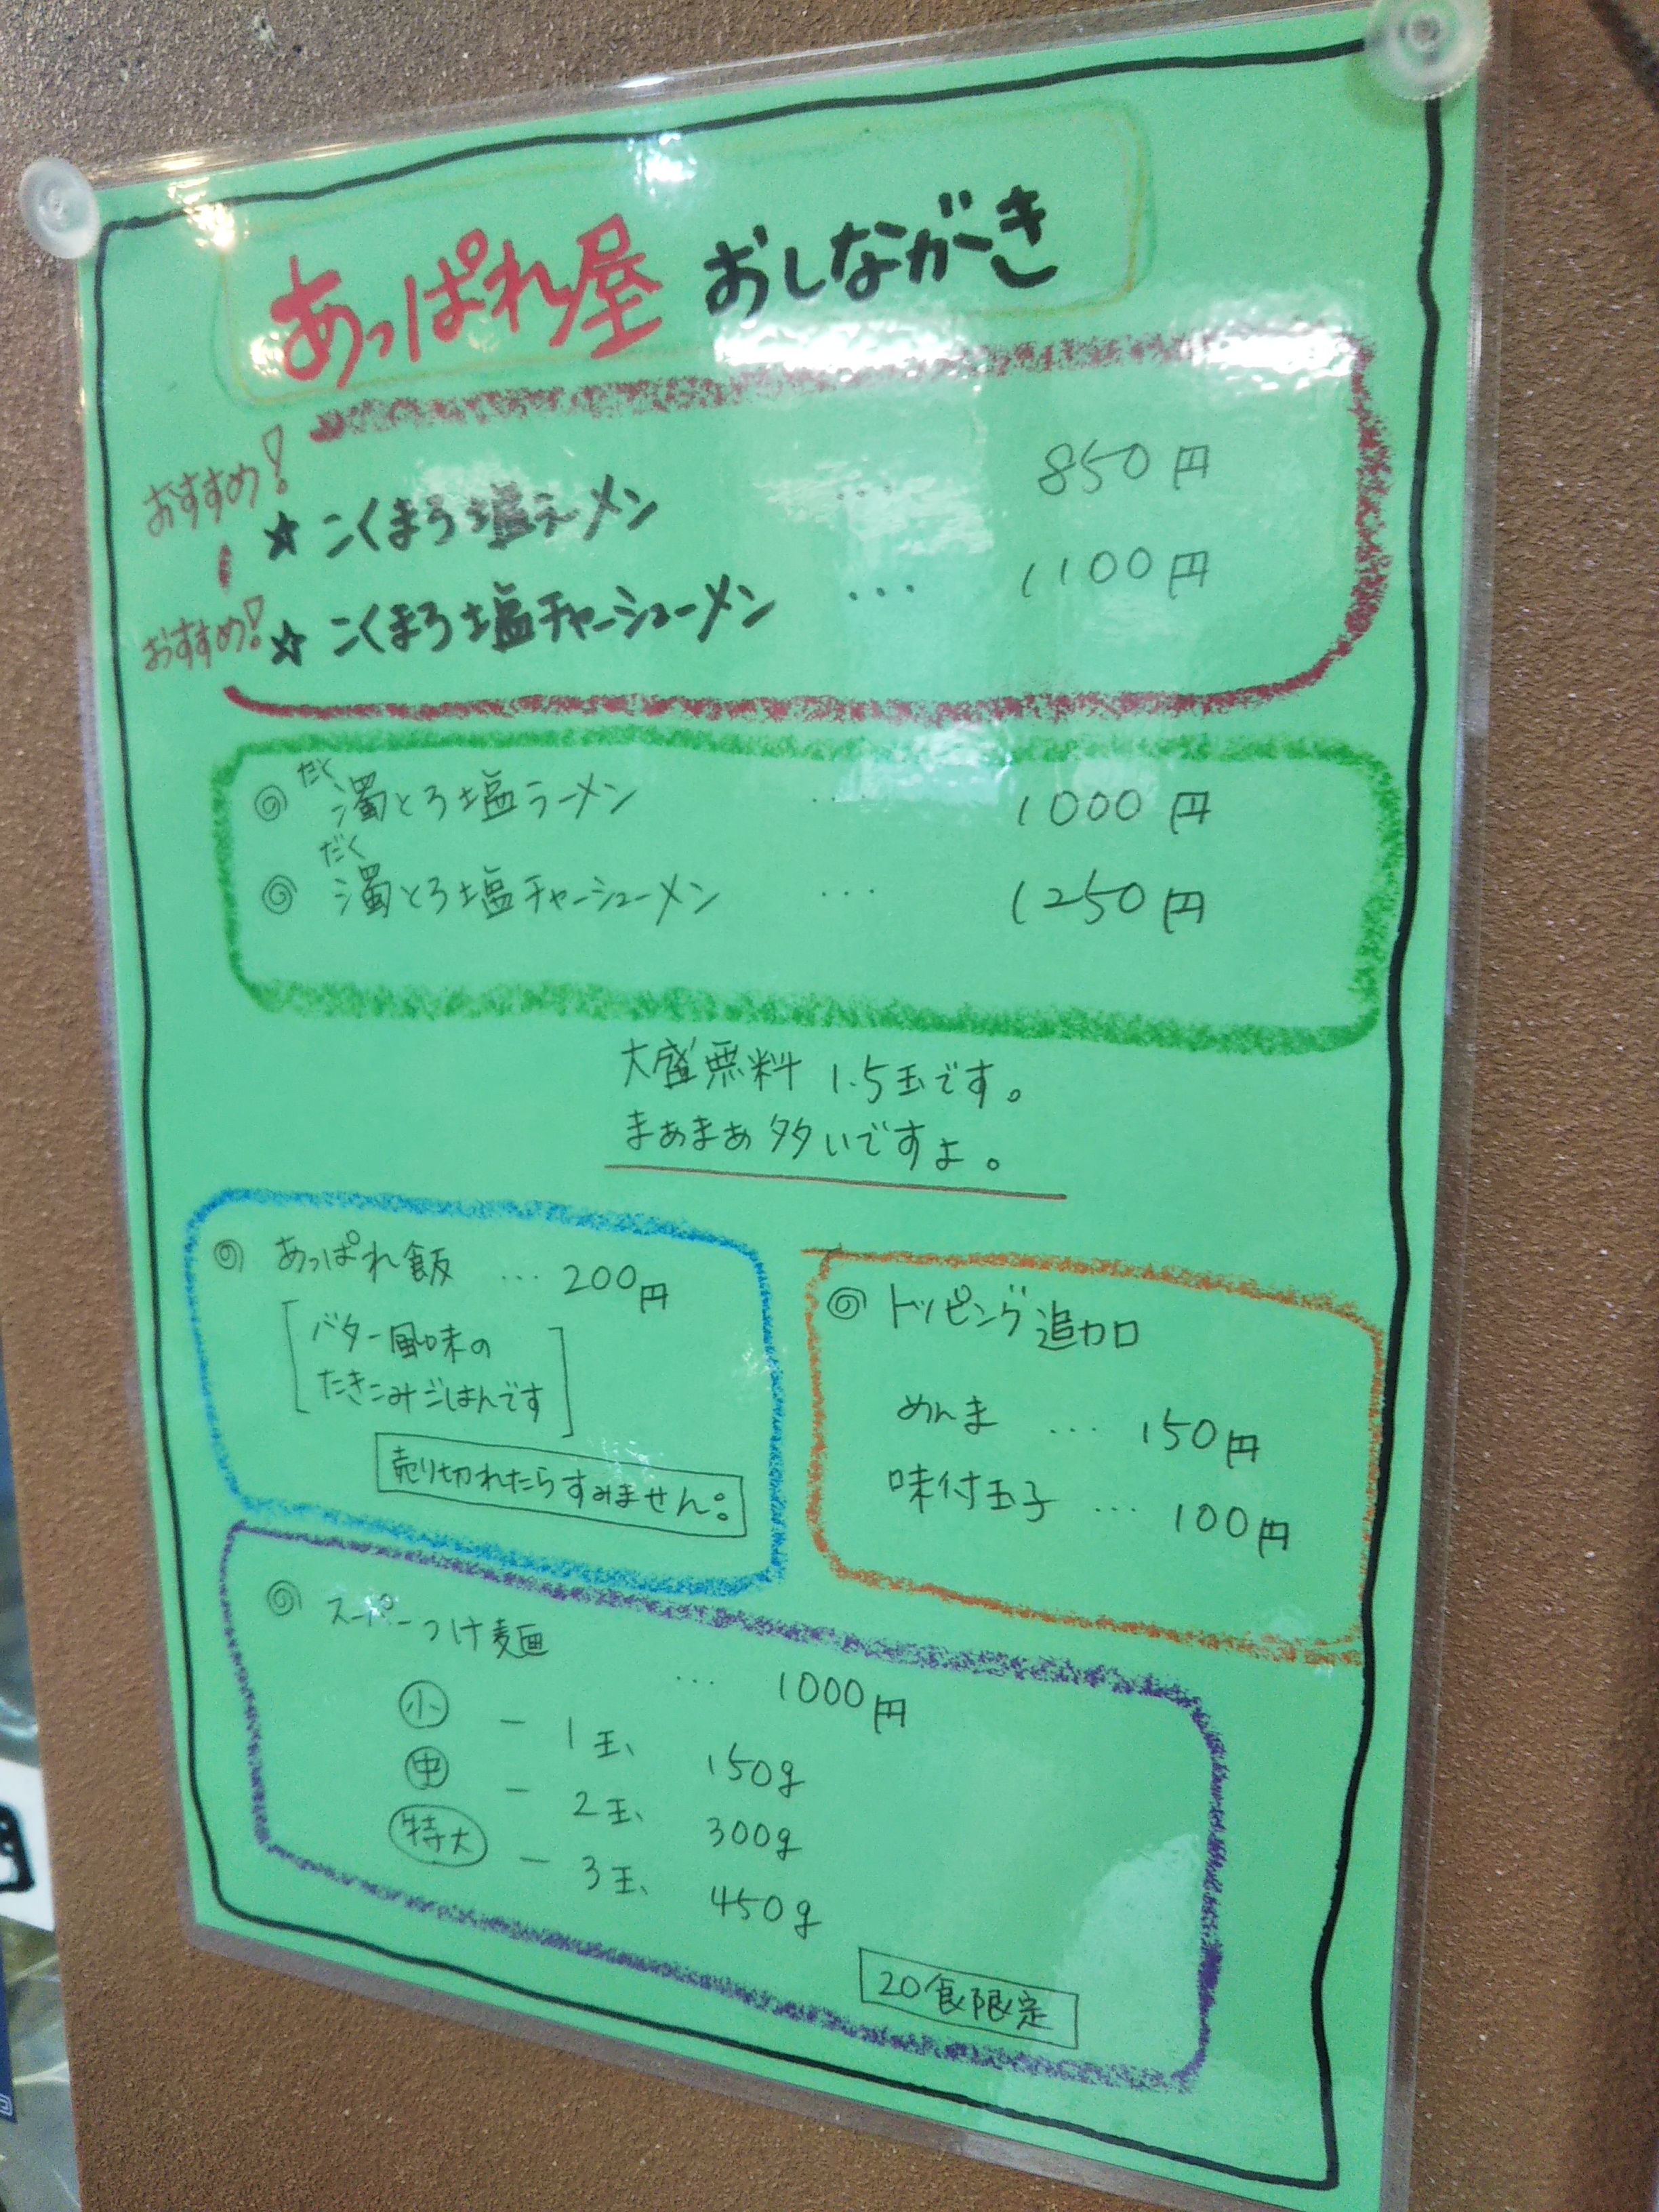 あっぱれ屋 おしながき
おすすめ！
☆ こくまろ塩ラーメン … 850円
おすすめ！
☆ こくまろ塩チャーシューメン … 1100円
だく
濁とろ塩ラーメン … 1000円
だく
濁とろ塩チャーシューメン … 1250円
大盛無料 1.5玉です。
まぁまぁ多いですよ。
あっぱれ飯 … 200円
[バター風味の
たきこみごはんです]
売り切れたらすみません。
トッピング追加
めんま … 150円
味付玉子 … 100円
スーパーつけ麺 … 1000円
小 − 1玉、 150g
中 − 2玉、 300g
特大 − 3玉、 450g
20食限定